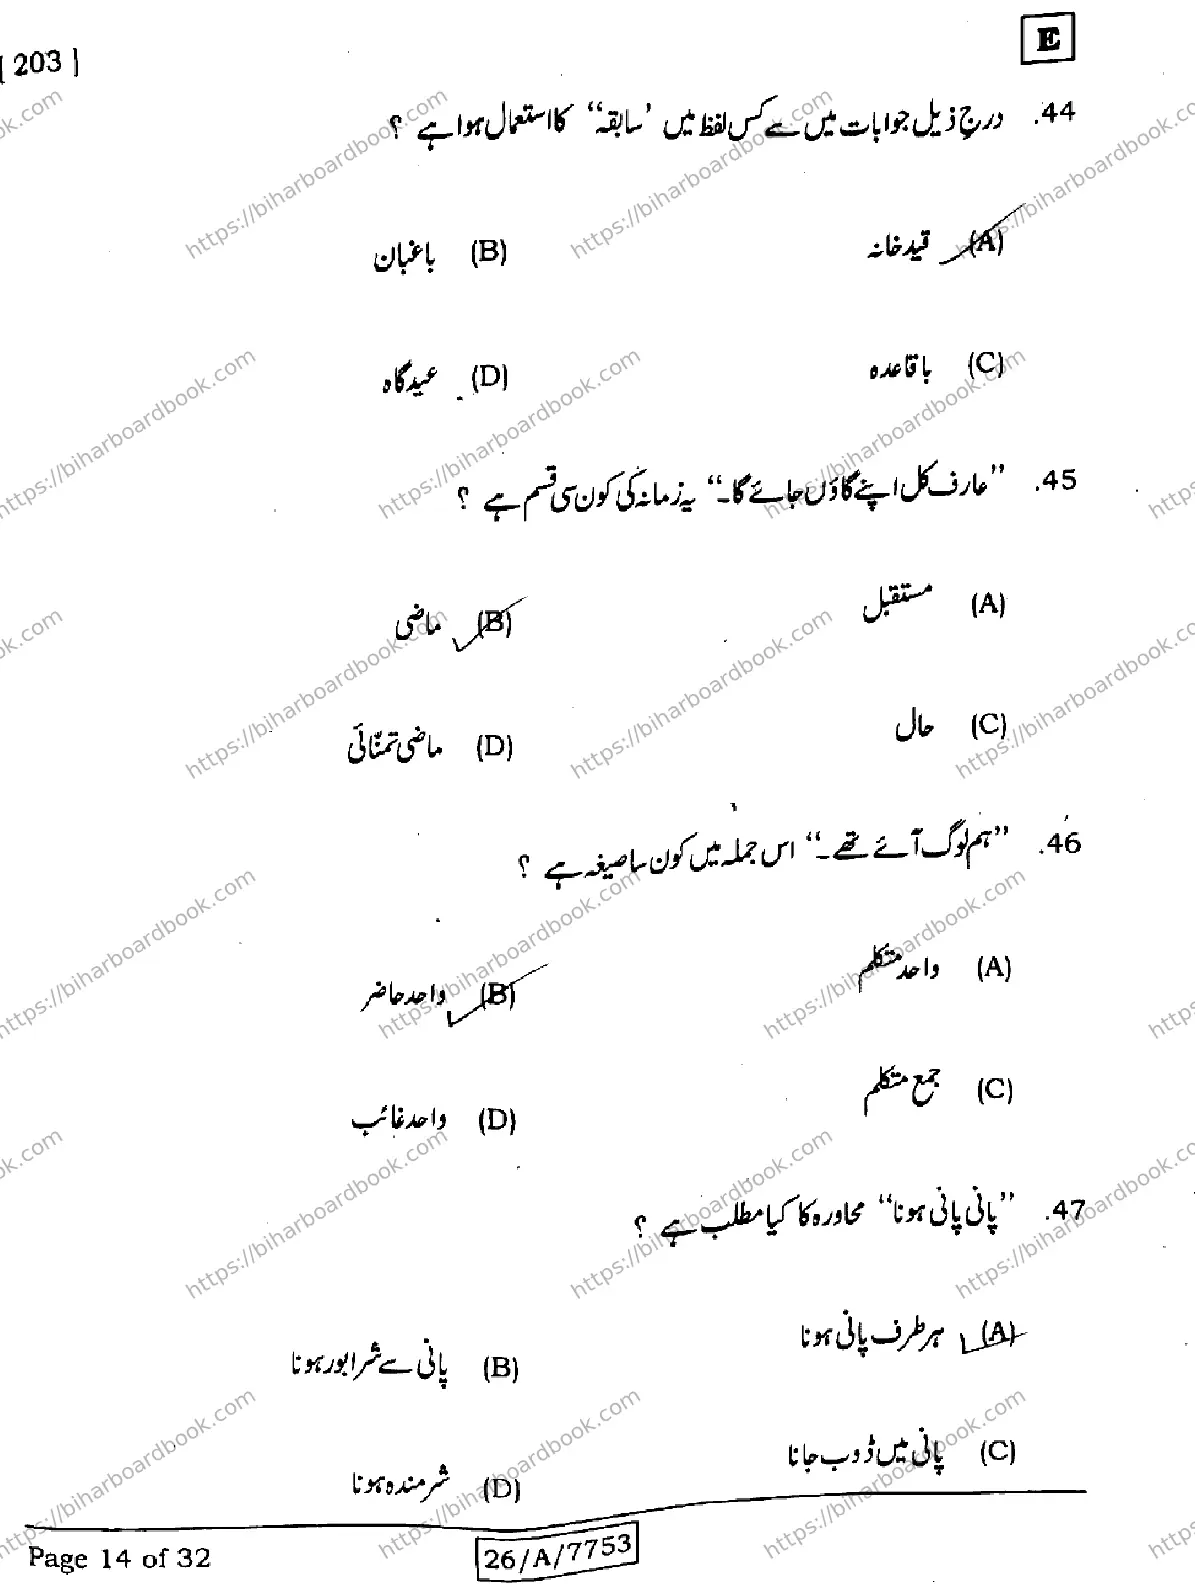 [ 203 ]
E
44. درج ذیل جوابات میں سے کس لفظ میں ’سابقہ‘‘ کا استعمال ہوا ہے ؟
(A) قید خانہ
(B) باغبان
(C) باقاعدہ
(D) عیدگاہ
45. ’’عارف کل اپنے گاؤں جائے گا۔‘‘ یہ زمانہ کی کون سی قسم ہے ؟
(A) مستقبل
(B) ماضی
(C) حال
(D) ماضی تمنّائی
46. ’’ہم لوگ آئے تھے۔‘‘ اس جملہ میں کون سا صیغہ ہے ؟
(A) واحد متکلم
(B) واحد حاضر
(C) جمع متکلم
(D) واحد غائب
47. ’’پانی پانی ہونا‘‘ محاورہ کا کیا مطلب ہے ؟
(A) ہر طرف پانی ہونا
(B) پانی سے شرابور ہونا
(C) پانی میں ڈوب جانا
(D) شرمندہ ہونا
Page 14 of 32
26/A/7753
https://biharboardbook.com